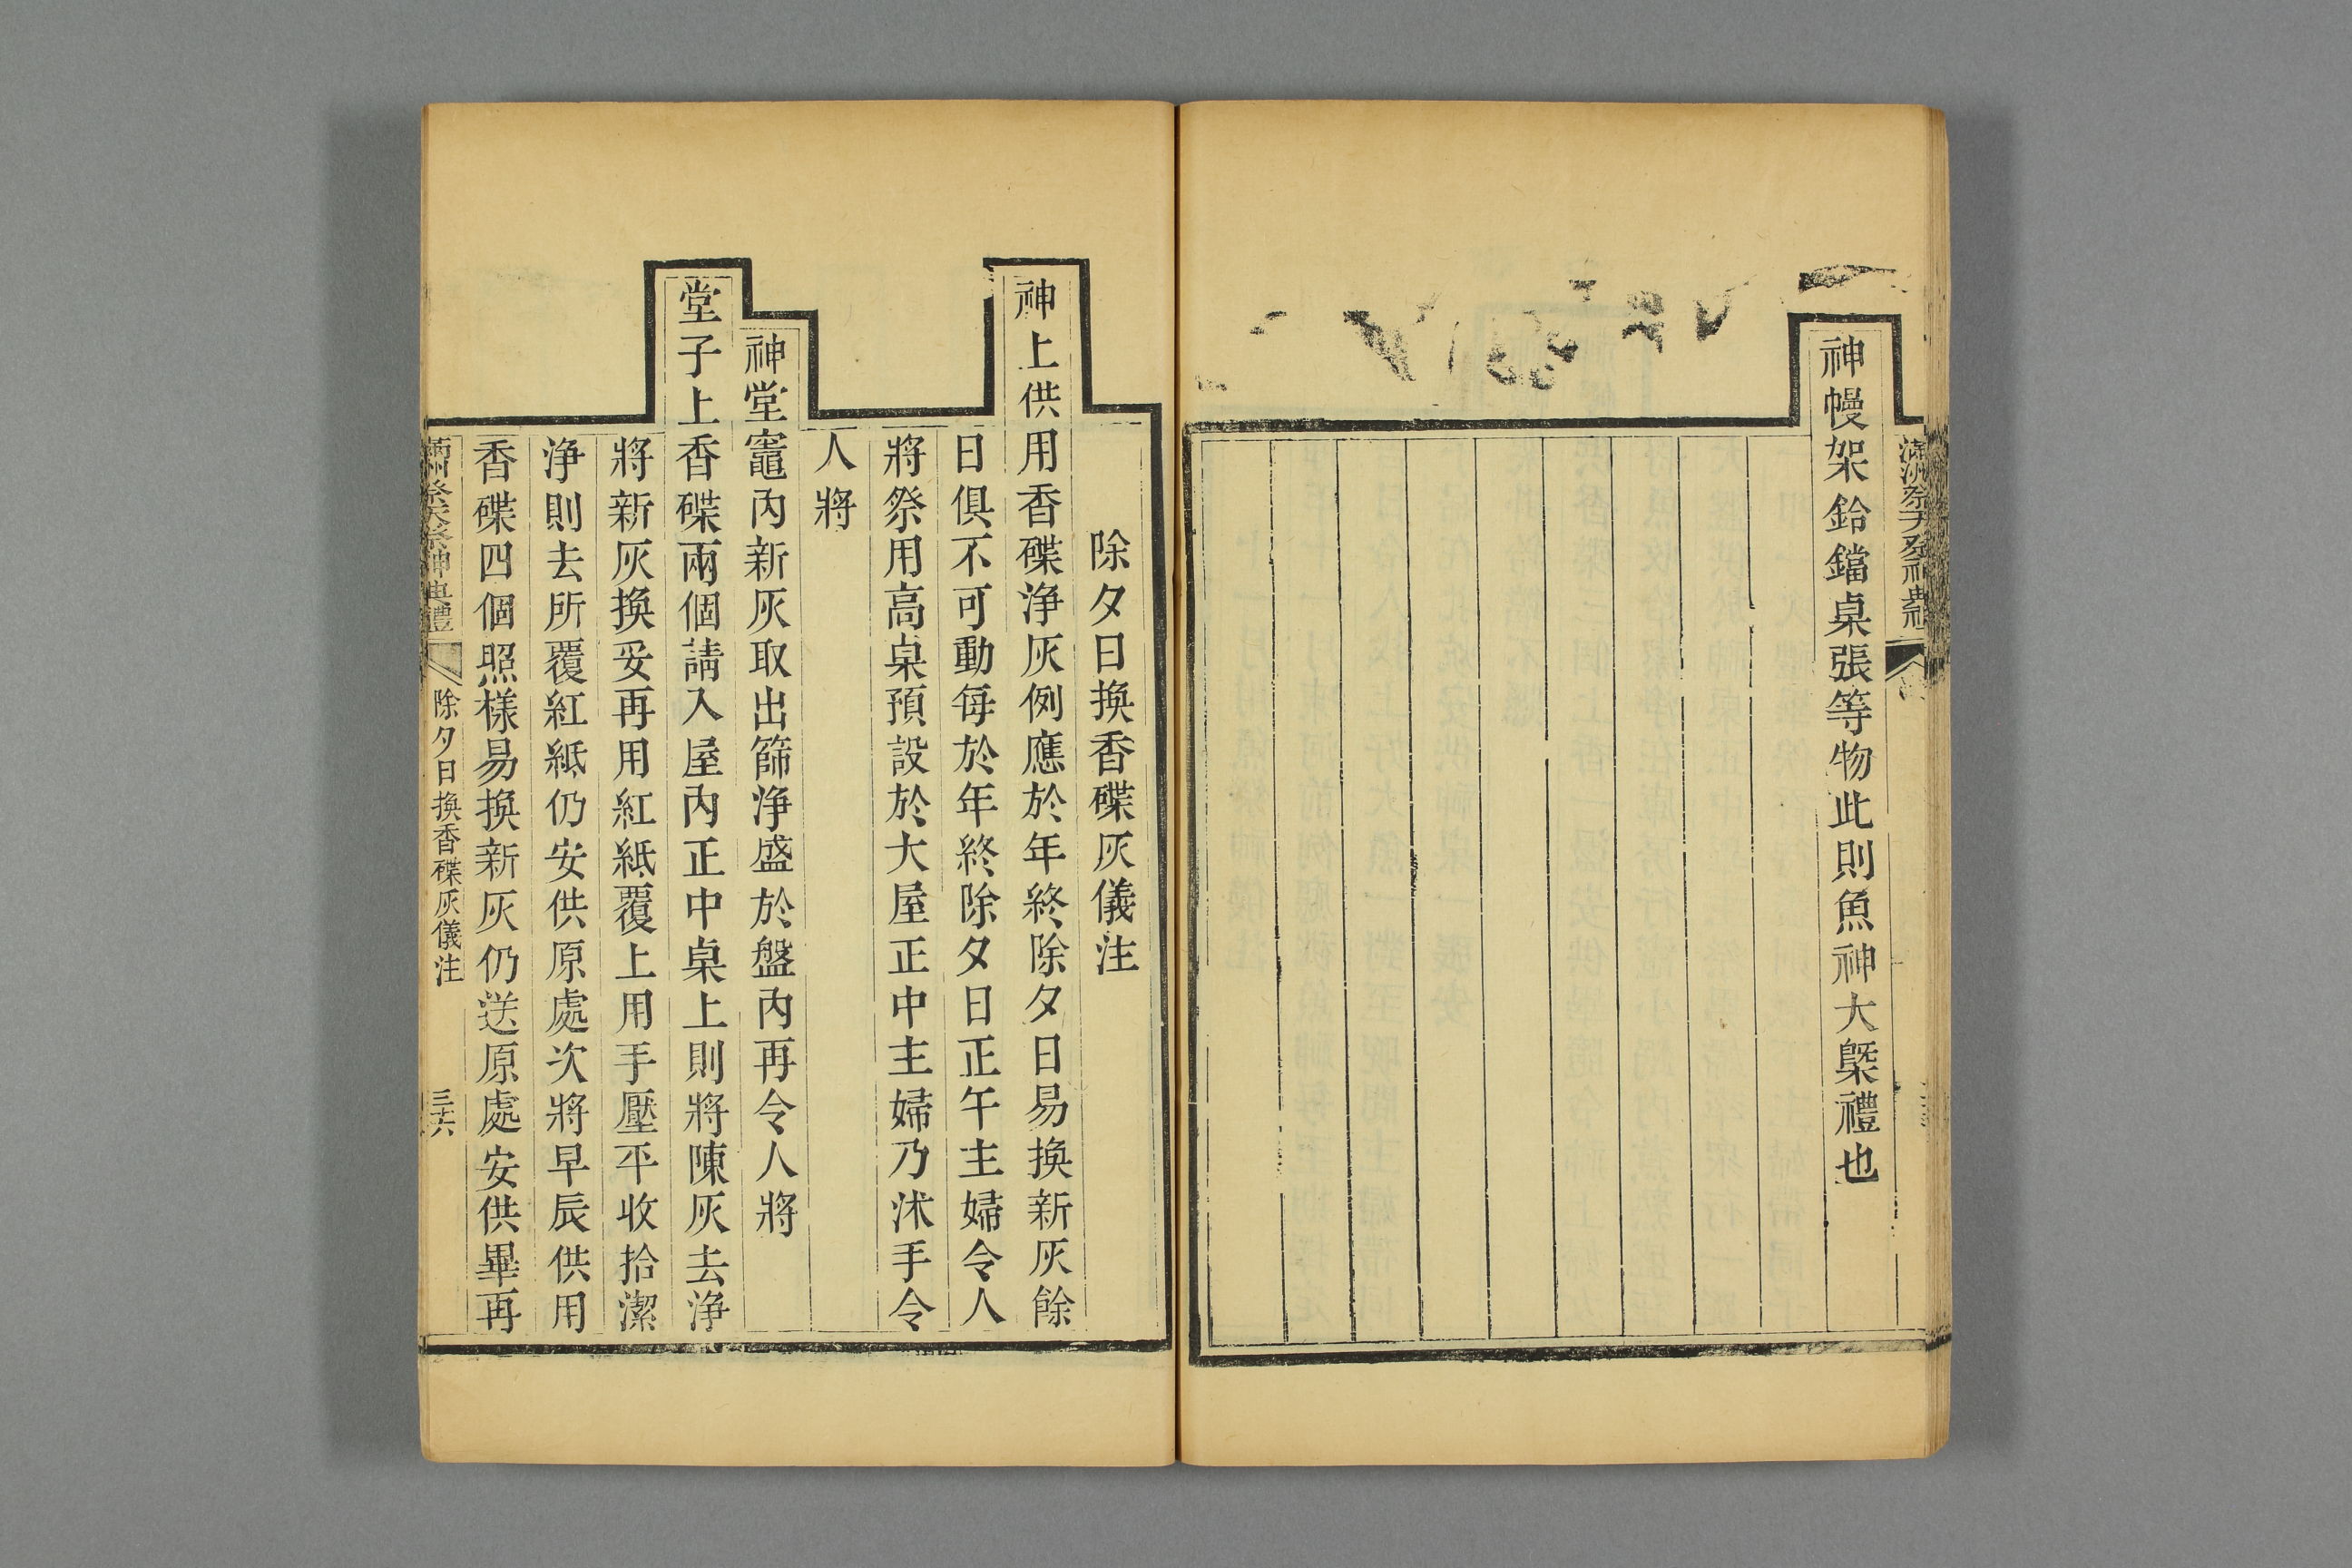 神幔架鈴鐺桌張等物此則魚神大槩禮也
除夕日換香碟灰儀注
神上供用香碟净灰例應於年終除夕日易換新灰餘
日俱不可動每於年終除夕日正午主婦令人
將祭用高桌預設於大屋正中主婦乃沐手令
人將
神堂竈內新灰取出篩净盛於盤內再令人將
堂子上香碟兩個請入屋內正中桌上則將陳灰去净
將新灰換妥再用紅紙覆上用手壓平收拾潔
净則去所覆紅紙仍安供原處次將早辰供用
香碟四個照樣易換新灰仍送原處安供畢再
滿洲祭天祭神典禮 除夕日換香碟灰儀注 三十六